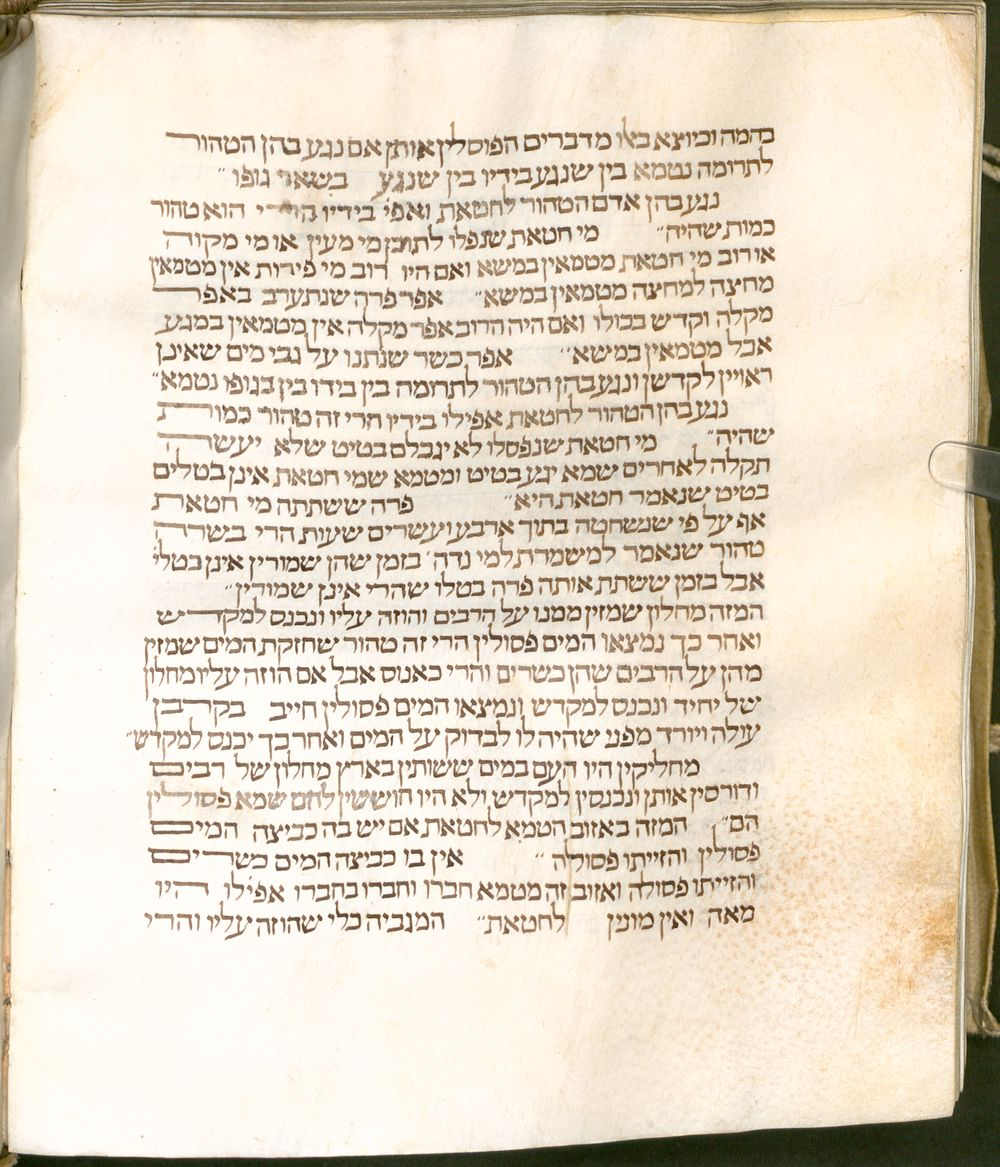 בהמה וכיוצא באלו מדברים הפוסלין אותן אם נגע בהן הטהור
לתרומה נטמא בין שנגע בידיו בין שנגע בשאר גופו ״
נגע בהן אדם הטהור לחטאת ואפי׳ בידיו הרי הוא טהור
כמות שהיה״ מי חטאת שנפלו לתוכן מי מעין או מי מקוה
או רוב מי חטאת מטמאין במשא ואם היו רוב מי פירות אין מטמאין
מחצה למחצה מטמאין במשא״ אפר פרה שנתערב באפר
מקלה וקדש בכולו ואם היה הרוב אפר מקלה אין מטמאין במגע
אבל מטמאין במשא״ אפר כשר שנתנו על גבי מים שאינן
ראויין לקדשן ונגע בהן הטהור לתרומה בין בידו בין בגופו נטמא״
נגע בהן הטהור לחטאת אפילו בידיו הרי זה טהור כמות
שהיה״ מי חטאת שנפסלו לא יגבלם בטיט שלא יעשה
תקלה לאחרים שמא יגע בטיט ומטמא שמי חטאת אינן בטלים
בטיט שנאמר חטאת היא״ פרה ששתתה מי חטאת
אף על פי שנשחטה בתוך ארבע ועשרים שעות הרי בשרה
טהור שנאמר למשמרת למי נדה׳ בזמן שהן שמורין אינן בטלי׳
אבל בזמן ששתת אותה פרה בטלו שהרי אינן שמורין״
המזה מחלון שמזין ממנו על הרבים והוזה עליו ונכנס למקדש
ואחר כך נמצאו המים פסולין הרי זה טהור שחזקת המים שמזין
מהן על הרבים שהן כשרים והרי כאנוס אבל אם הוזה עליו מחלון
של יחיד ונכנס למקדש ונמצאו המים פסולין חייב בקרבן
עולה ויורד מפני שהיה לו לבדוק על המים ואחר כך יכנס למקדש״
מחליקין היו העם במים ששותין בארץ מחלון של רבים
ודורסין אותן ונכנסין למקדש ולא היו חוששין להם שמא פסולין
הם״ המזה באזוב הטמא לחטאת אם יש בה כביצה המים
פסולין והזייתו פסולה ״ אין בו כביצה המים כשרים
והזייתו פסולה ואזוב זה מטמא חברו וחברו בחברו אפילו היו
מאה ואין מונין לחטאת״ המגביה כלי שהוזה עליו והרי